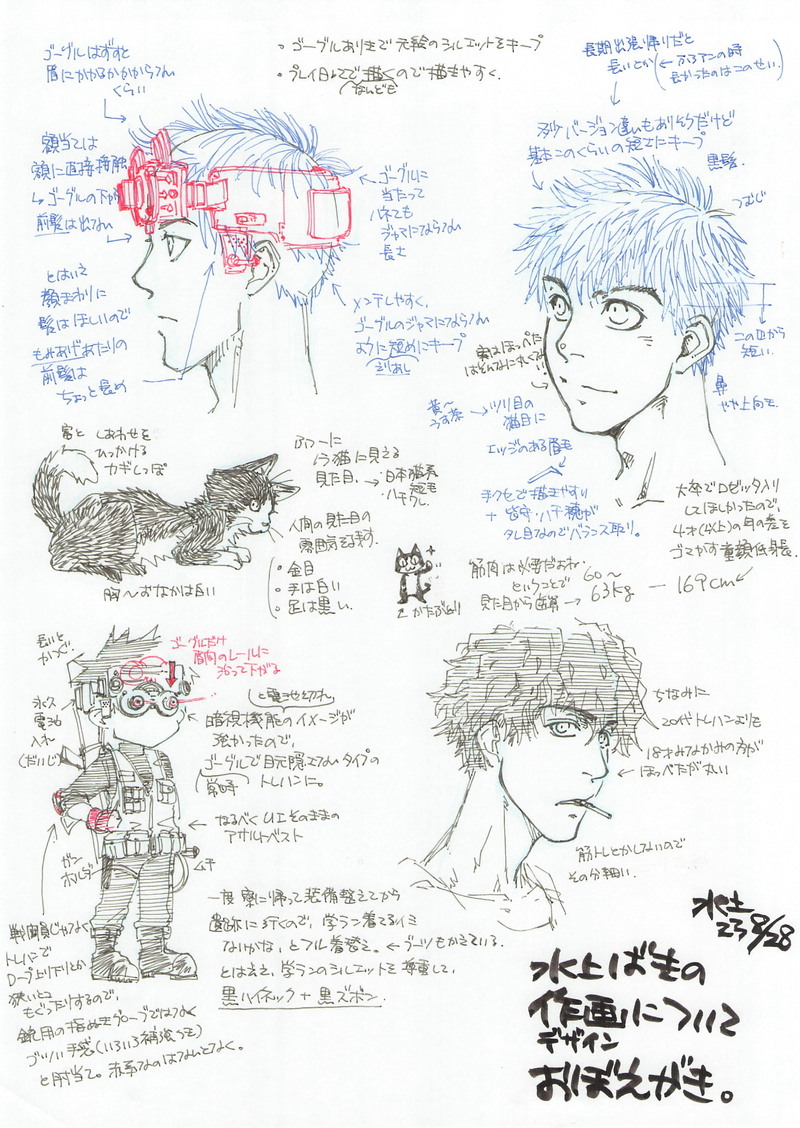 ・ゴーグルありきで元絵のシルエットをキープ
・プレイ日記で描くので描きやすく。
(なんども
ゴーグルはずすと
眉にかかるかかからない
くらい
長期出張帰りだと
長いとか
長かったのはこのせい。
多少バージョン違いもありそうだけど
基本このくらいの短さにキープ
黒髪。
つむじ
額当ては
額に直接接触
↳ゴーグルの下から
前髪は出ない
とはいえ
顔まわりに
髪はほしいので
もみあげあたりの
前髪は
ちょっと長め
← ゴーグルに
当たって
ハネても
ジャマにならない
長さ
メンテしやすく、
ゴーグルのジャマにならない
ように短めにキープ
実はほっぺた
はそんなに丸くない
この辺から
短い。
鼻
やや上向き
→ ツリ目の
猫目に
エッジのある眉毛
手クセで描きやすい
タレ目なのでバランス取り。
富と しあわせを
ひっかける
カギしっぽ
ノラ猫に見える
見た目。→
・日本猫系
短毛
・ハチワレ。
人間の見た目の
雰囲気をのこす。
・金目
・手は白い
・足は黒い。
胸〜おなかは白い
大卒でロゼッタ入り
してほしかったので、
4才(以上)の年の差を
ゴマかす童顔低身長。
筋肉は必要だよね。
ということで
見た目から逆算 → 60〜63kg — 169cm
長いと
かつぐ
ゴーグルだけ
眉間のレールに
沿って下がる
永久
電池
入れ
(だいじ)
と電池切れ
暗視機能のイメージが
強かったので、
ゴーグルで目元隠さないタイプの
(常時 トレハンに。
← なるべくUIそのままの
アサルトベスト
ガン
ホルダー
ムチ
ちなみに
20代トレハンよりも
18才みなかみの方が
← ほっぺたが丸い
筋トレとかしてないので
その分細い。
戦闘員じゃなく
トレハンで
ロープ上り下りとか
狭いとこ
もぐったりするので、
銃用の指ぬきグローブではなく
ゴツい手袋(いろいろ補強つき)
と肘当て。赤系なのはなんとなく。
一度寮に帰って装備整えてから
遺跡に行くので、学ラン着てるイミ
ないかな、とフル着替え。← ブーツもかえている。
とはいえ、学ランのシルエットを尊重して、
黒ハイネック + 黒ズボン。
水土
23 8/28
水上ばきの
作画について
デザイン
おぼえがき。